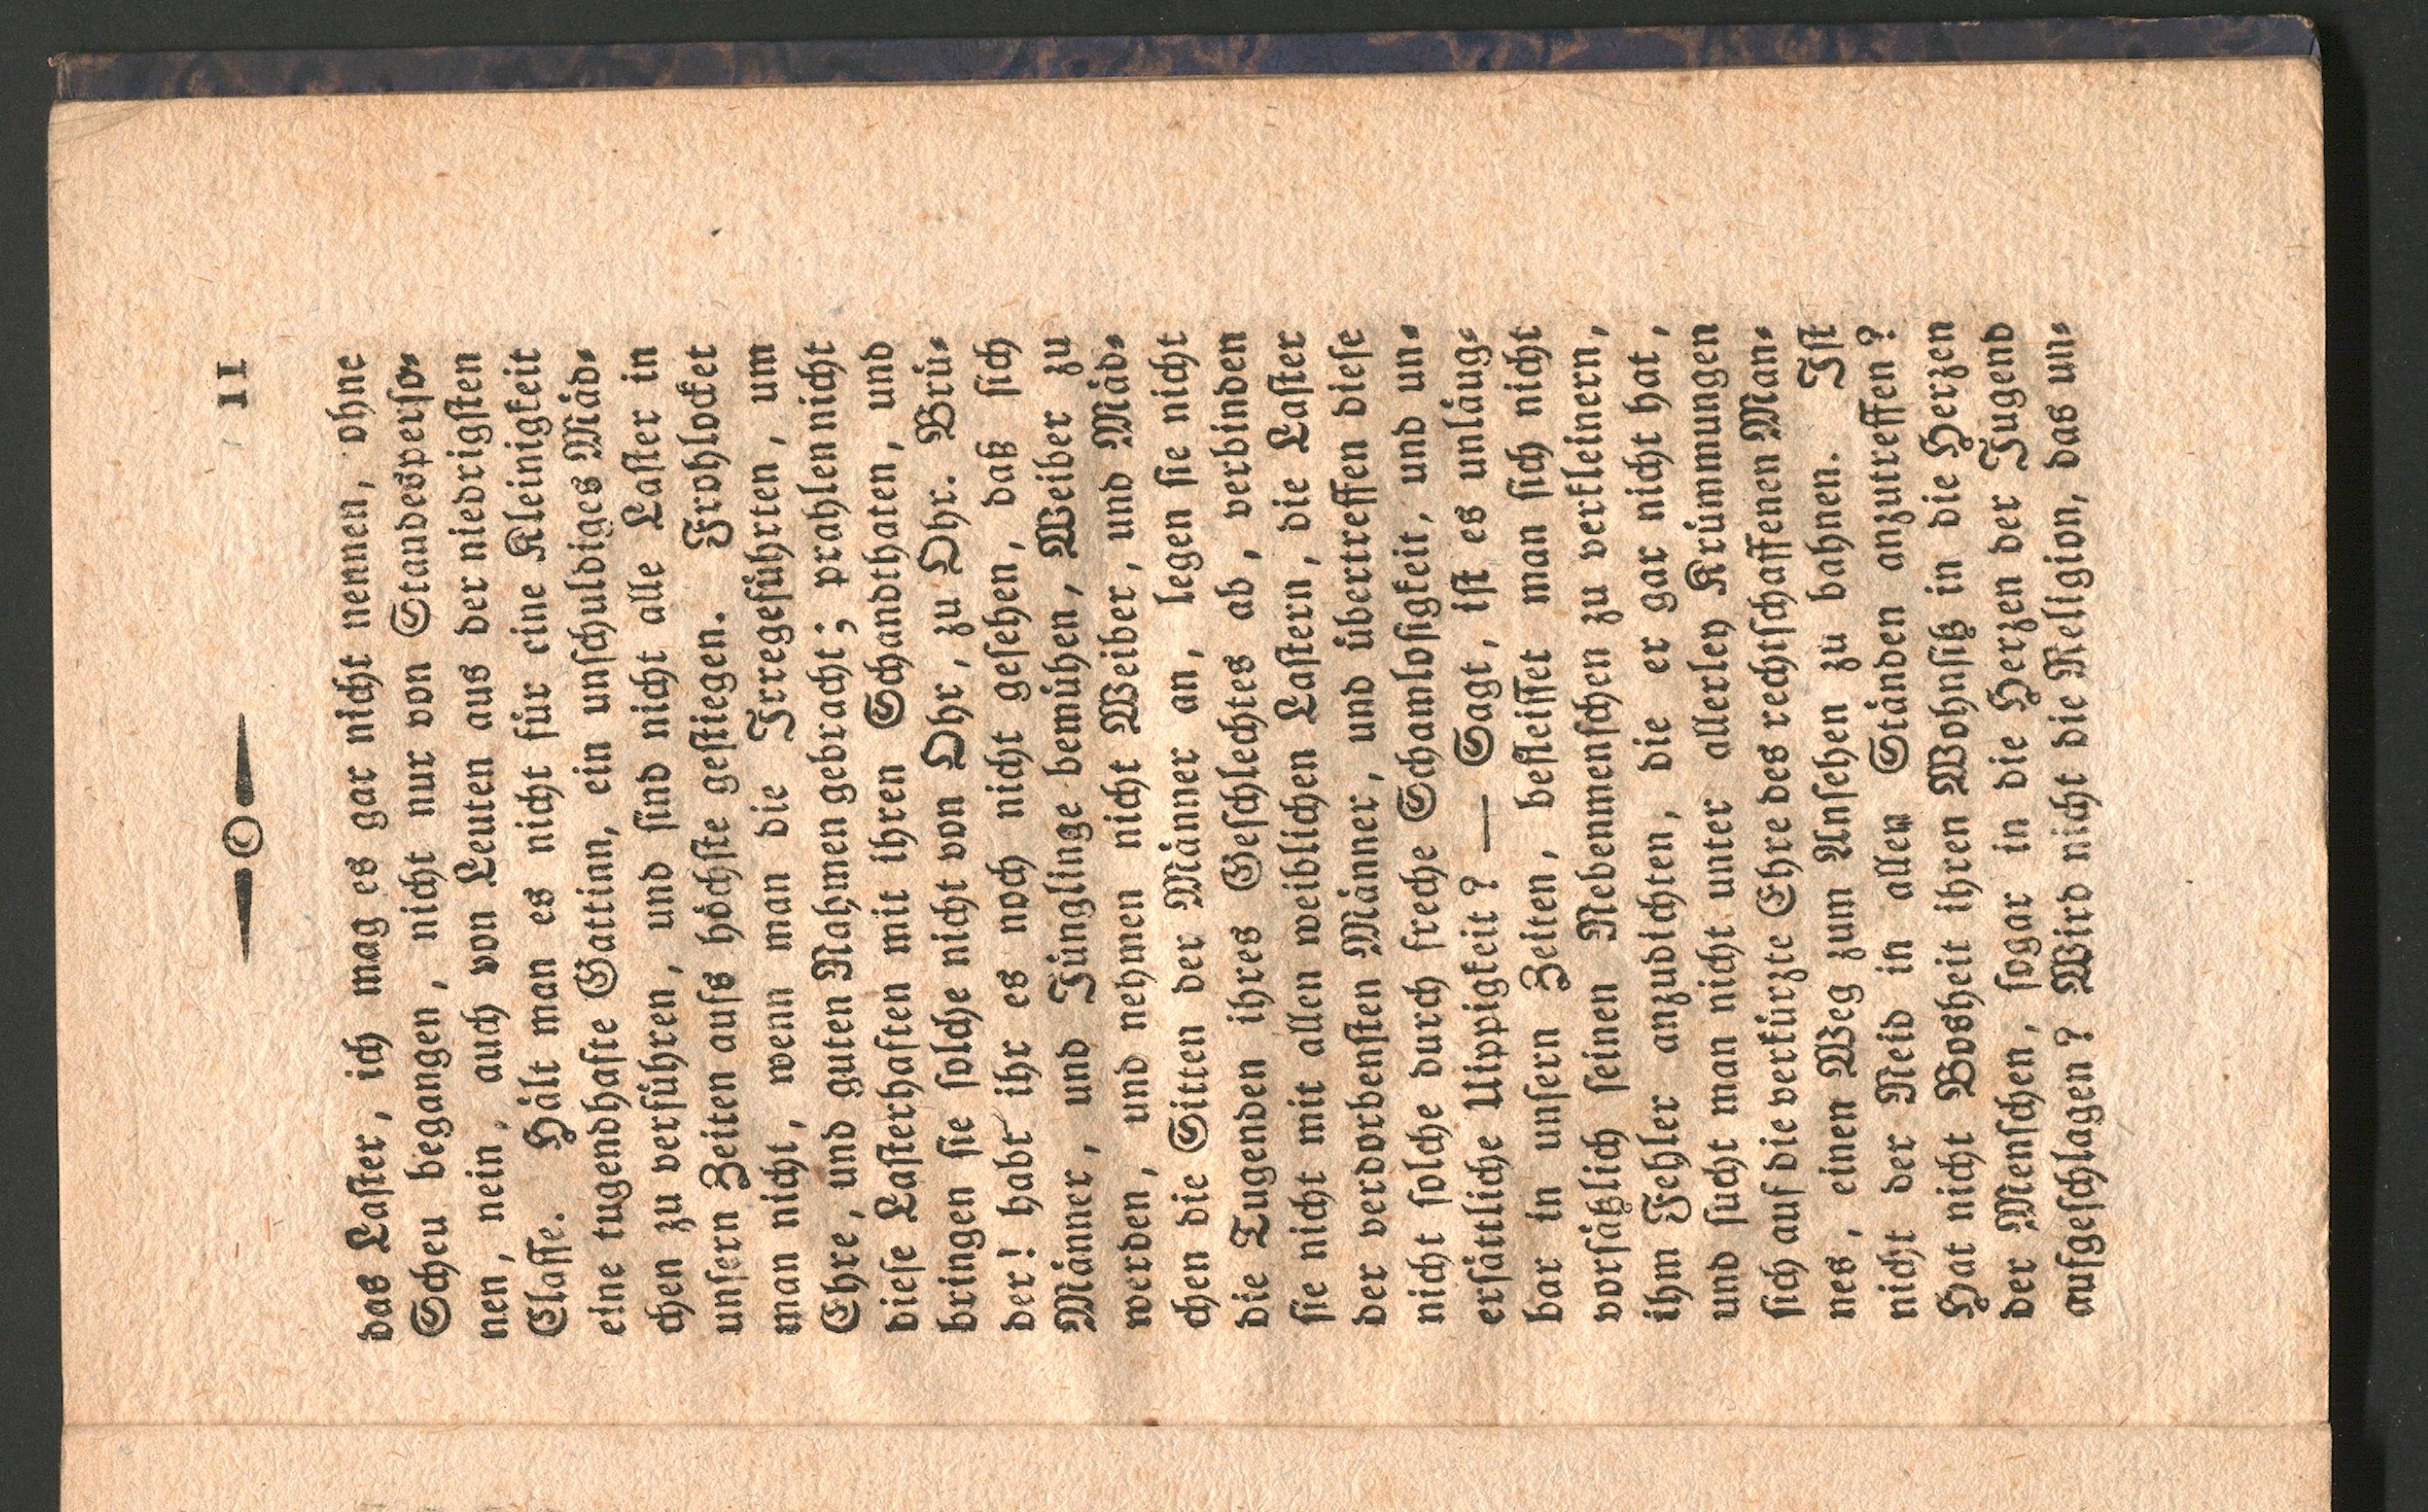 11
das Laster, ich mag es gar nicht nennen, ohne
Scheu begangen, nicht nur von Standesperso-
nen, nein, auch von Leuten aus der niedrigsten
Classe. Hält man es nicht für eine Kleinigkeit
eine tugendhafte Gattinn, ein unschuldiges Mäd-
chen zu verführen, und sind nicht alle Laster in
unsern Zeiten aufs höchste gestiegen. Frohlocket
man nicht, wenn man die Irregeführten, um
Ehre, und guten Nahmen gebracht; prahlen nicht
diese Lasterhaften mit ihren Schandthaten, und
bringen sie solche nicht von Ohr, zu Ohr. Brü-
der! habt ihr es noch nicht gesehen, daß sich
Männer, und Jünglinge bemühen, Weiber zu
werden, und nehmen nicht Weiber, und Mäd-
chen die Sitten der Männer an, legen sie nicht
die Tugenden ihres Geschlechtes ab, verbinden
sie nicht mit allen weiblichen Lastern, die Laster
der verdorbensten Männer, und übertreffen diese
nicht solche durch freche Schamlosigkeit, und un-
ersättliche Uippigkeit? — Sagt, ist es unläug-
bar in unsern Zeiten, befleisset man sich nicht
vorsätzlich seinen Nebenmenschen zu verkleinern,
ihm Fehler anzudichten, die er gar nicht hat,
und sucht man nicht unter allerley Krümmungen
sich auf die verkürzte Ehre des rechtschaffenen Man-
nes, einen Weg zum Ansehen zu bahnen. Ist
nicht der Neid in allen Ständen anzutreffen?
Hat nicht Bosheit ihren Wohnsitz in die Herzen
der Menschen, sogar in die Herzen der Jugend
aufgeschlagen? Wird nicht die Religion, das un-